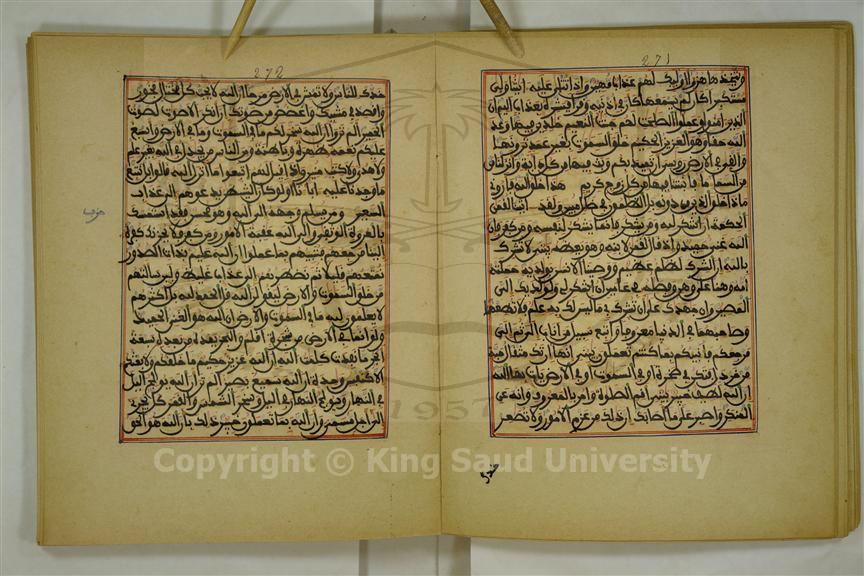 271
ويتخذها هزوا اوليك لهم عذاب مهين واذا تتلى عليه ايتنا ولى
مستكبرا كان لم يسمعها كان في اذنيه وقرا فبشره بعذاب اليم ان
الذين امنوا وعملوا الصلحت لهم جنت النعيم خلدين فيها وعد
الله حقا وهو العزيز الحكيم خلق السموت بغير عمد ترونها
والقى في الارض روسي ان تميد بكم وبث فيها من كل دابة وانزلنا
من السما ما فانبتنا فيها من كل زوج كريم هذا خلق الله فاروني
ماذا خلق الذين من دونه بل الظلمون في ضلل مبين ولقد اتينا لقمن
الحكمة ان اشكر لله ومن يشكر فانما يشكر لنفسه ومن كفر فان
الله غني حميد واذ قال لقمن لابنه وهو يعظه يبني لا تشرك
بالله ان الشرك لظلم عظيم ووصينا الانسن بولديه حملته
امه وهنا على وهن وفصله في عامين ان اشكر لي ولولديك الي
المصير وان جهدك على ان تشرك بي ما ليس لك به علم فلا تطعهما
وصاحبهما في الدنيا معروفا واتبع سبيل من اناب الي ثم الي
مرجعكم فانبيكم بما كنتم تعملون يبني انها ان تك مثقال حبة
من خردل فتكن في صخرة او في السموت او في الارض يات بها الله
ان الله لطيف خبير يبني اقم الصلوة وامر بالمعروف وانه عن
المنكر واصبر على ما اصابك ان ذلك من عزم الامور ولا تصعر
خدك
272
خدك للناس ولا تمش في الارض مرحا ان الله لا يحب كل مختال فخور
واقصد في مشيك واغضض من صوتك ان انكر الاصوت لصوت
الحمير الم تروا ان الله سخر لكم ما في السموت وما في الارض واسبغ
عليكم نعمه ظهرة وباطنة ومن الناس من يجدل في الله بغير علم
ولا هدى ولا كتب منير واذا قيل لهم اتبعوا ما انزل الله قالوا بل نتبع
ما وجدنا عليه اباءنا اولو كان الشيطن يدعوهم الى عذاب
السعير ومن يسلم وجهه الى الله وهو محسن فقد استمسك
بالعروة الوثقى والى الله عقبة الامور ومن كفر فلا يحزنك كفره
الينا مرجعهم فننبيهم بما عملوا ان الله عليم بذات الصدور
نمتعهم قليلا ثم نضطرهم الى عذاب غليظ ولين سالتهم
من خلق السموت والارض ليقولن الله قل الحمد لله بل اكثرهم
لا يعلمون لله ما في السموت والارض ان الله هو الغني الحميد
ولو انما في الارض من شجرة اقلم والبحر يمده من بعده سبعة
ابحر ما نفدت كلمت الله ان الله عزيز حكيم ما خلقكم ولا بعثكم
الا كنفس وحدة ان الله سميع بصير الم تر ان الله يولج اليل
في النهار ويولج النهار في اليل وسخر الشمس والقمر كل يجري
الى اجل مسمى وان الله بما تعملون خبير ذلك بان الله هو الحق
حزب
1957
Copyright © King Saud University